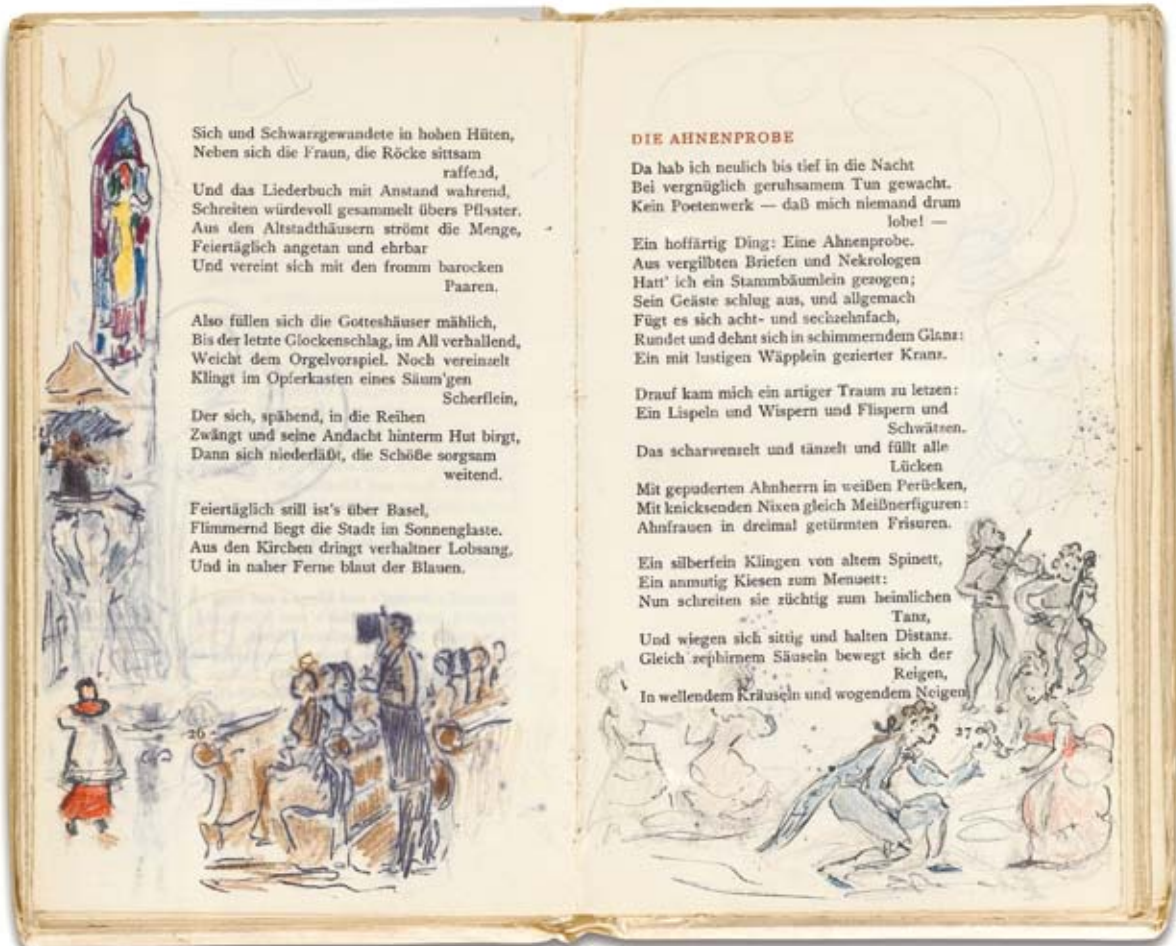 Sich und Schwarzgewandete in hohen Hüten,
Neben sich die Fraun, die Röcke sittsam
raffend,
Und das Liederbuch mit Anstand wahrend,
Schreiten würdevoll gesammelt übers Pflaster.
Aus den Altstadthäusern strömt die Menge,
Feiertäglich angetan und ehrbar
Und vereint sich mit den fromm barocken
Paaren.
Also füllen sich die Gotteshäuser mählich,
Bis der letzte Glockenschlag, im All verhallend,
Weicht dem Orgelvorspiel. Noch vereinzelt
Klingt im Opferkasten eines Säum'gen
Scherflein,
Der sich, spähend, in die Reihen
Zwängt und seine Andacht hinterm Hut birgt,
Dann sich niederläßt, die Schöße sorgsam
weitend.
Feiertäglich still ist's über Basel,
Flimmernd liegt die Stadt im Sonnenglaste.
Aus den Kirchen dringt verhaltner Lobsang,
Und in naher Ferne blaut der Blauen.
26
DIE AHNENPROBE
Da hab ich neulich bis tief in die Nacht
Bei vergnüglich geruhsamem Tun gewacht.
Kein Poetenwerk — daß mich niemand drum
lobe! —
Ein hoffärtig Ding: Eine Ahnenprobe.
Aus vergilbten Briefen und Nekrologen
Hatt' ich ein Stammbäumlein gezogen;
Sein Geäste schlug aus, und allgemach
Fügt es sich acht- und sechzehnfach,
Rundet und dehnt sich in schimmerndem Glanz:
Ein mit lustigen Wäpplein gezierter Kranz.
Drauf kam mich ein artiger Traum zu letzen:
Ein Lispeln und Wispern und Flispern und
Schwätzen.
Das scharwenzelt und tänzelt und füllt alle
Lücken
Mit gepuderten Ahnherrn in weißen Perücken,
Mit knicksenden Nixen gleich Meißnerfiguren:
Ahnfrauen in dreimal getürmten Frisuren.
Ein silberfein Klingen von altem Spinett,
Ein anmutig Kiesen zum Menuett:
Nun schreiten sie züchtig zum heimlichen
Tanz,
Und wiegen sich sittig und halten Distanz.
Gleich zephirnem Säuseln bewegt sich der
Reigen,
In wellendem Kräuseln und wogendem Neigen
27